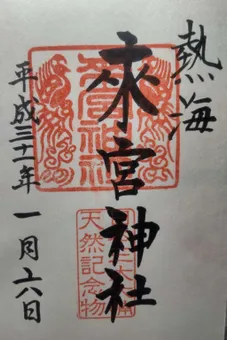 熱海
來宮神社
天然記念物
平成三十一年 一月十六日